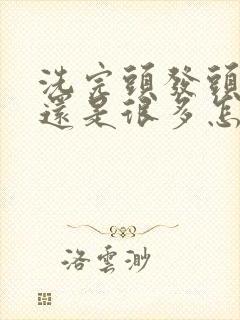 洗完頭發頭
還是很多怎
洛雲渺